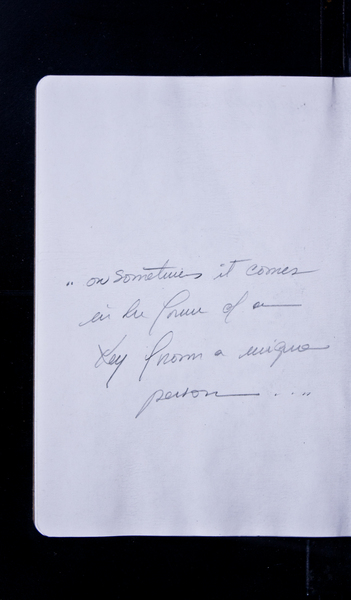 "or sometimes it comes
in the form of a
key from a unique
person ..."